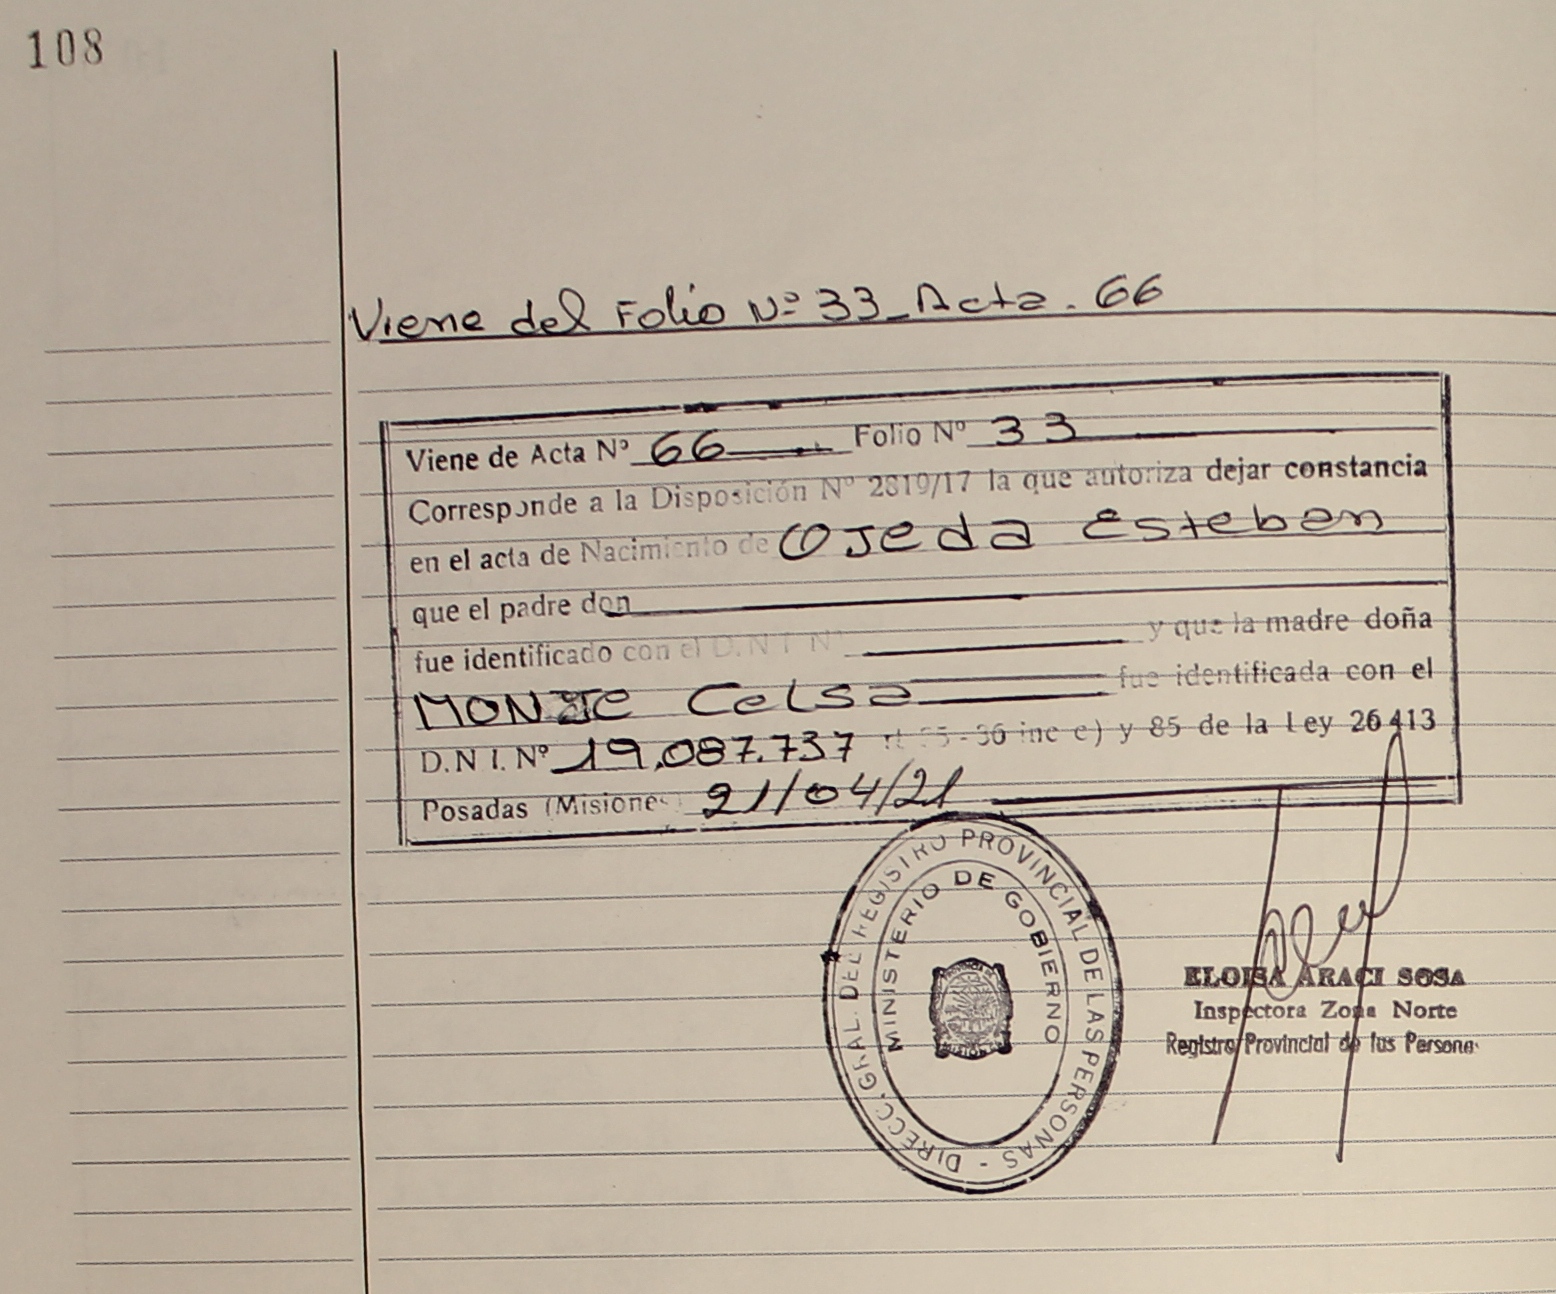 108
Viene del Folio Nº 33_Acta. 66
Viene de Acta Nº 66 Folio Nº 33
Corresponde a la Disposición Nº 2819/17 la que autoriza dejar constancia
en el acta de Nacimiento de Ojeda Esteban
que el padre don
fue identificado con el D.N.I Nº y que la madre doña
MONJE Celsa fue identificada con el
D.N.I. Nº 19.087.737 inc e) y 85 de la Ley 26413
Posadas (Misiones) 21/04/21
DIRECC. GRAL. DEL REGISTRO PROVINCIAL DE LAS PERSONAS -
MINISTERIO DE GOBIERNO
ELOISA ARACI SOSA
Inspectora Zona Norte
Registro Provincial de las Persona